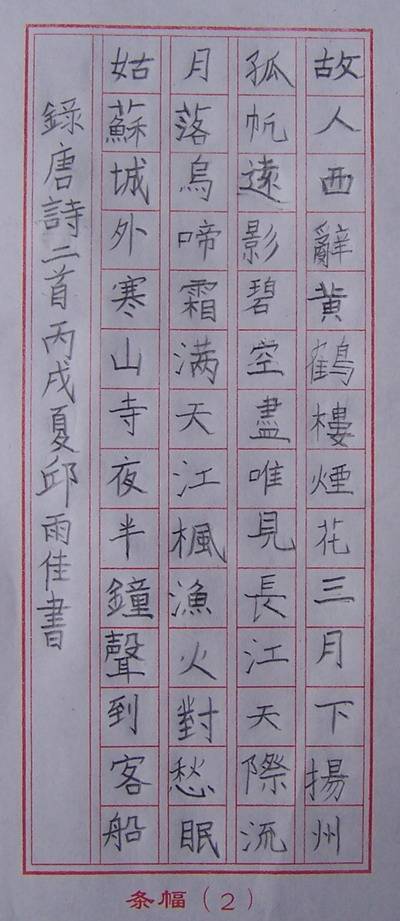 故人西辭黃鶴樓煙花三月下揚州
孤帆遠影碧空盡唯見長江天際流
月落烏啼霜满天江楓漁火對愁眠
姑蘇城外寒山寺夜半鐘聲到客船
錄唐詩二首丙戌夏邱雨佳書
条幅（2）